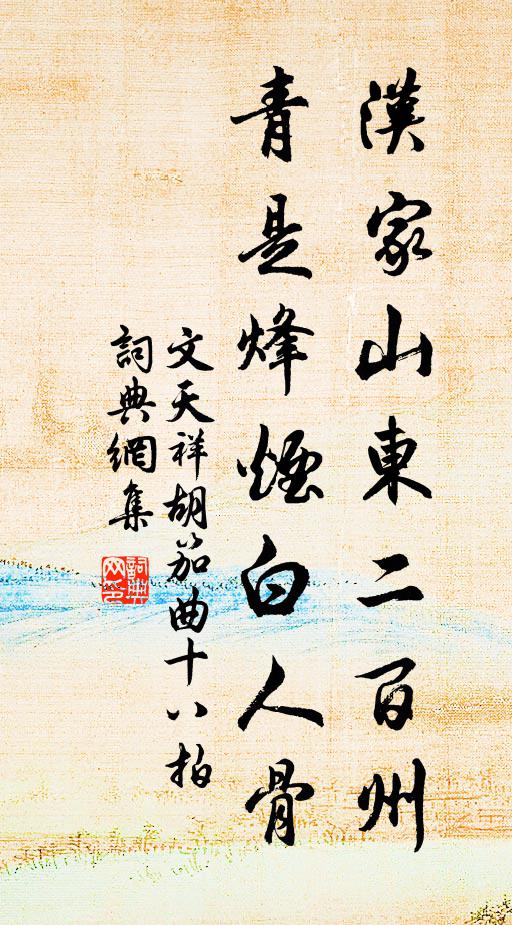 漢家山東二百州
青是烽煙白人骨
文天祥胡笳曲十八拍
詞典網集
詞典網印